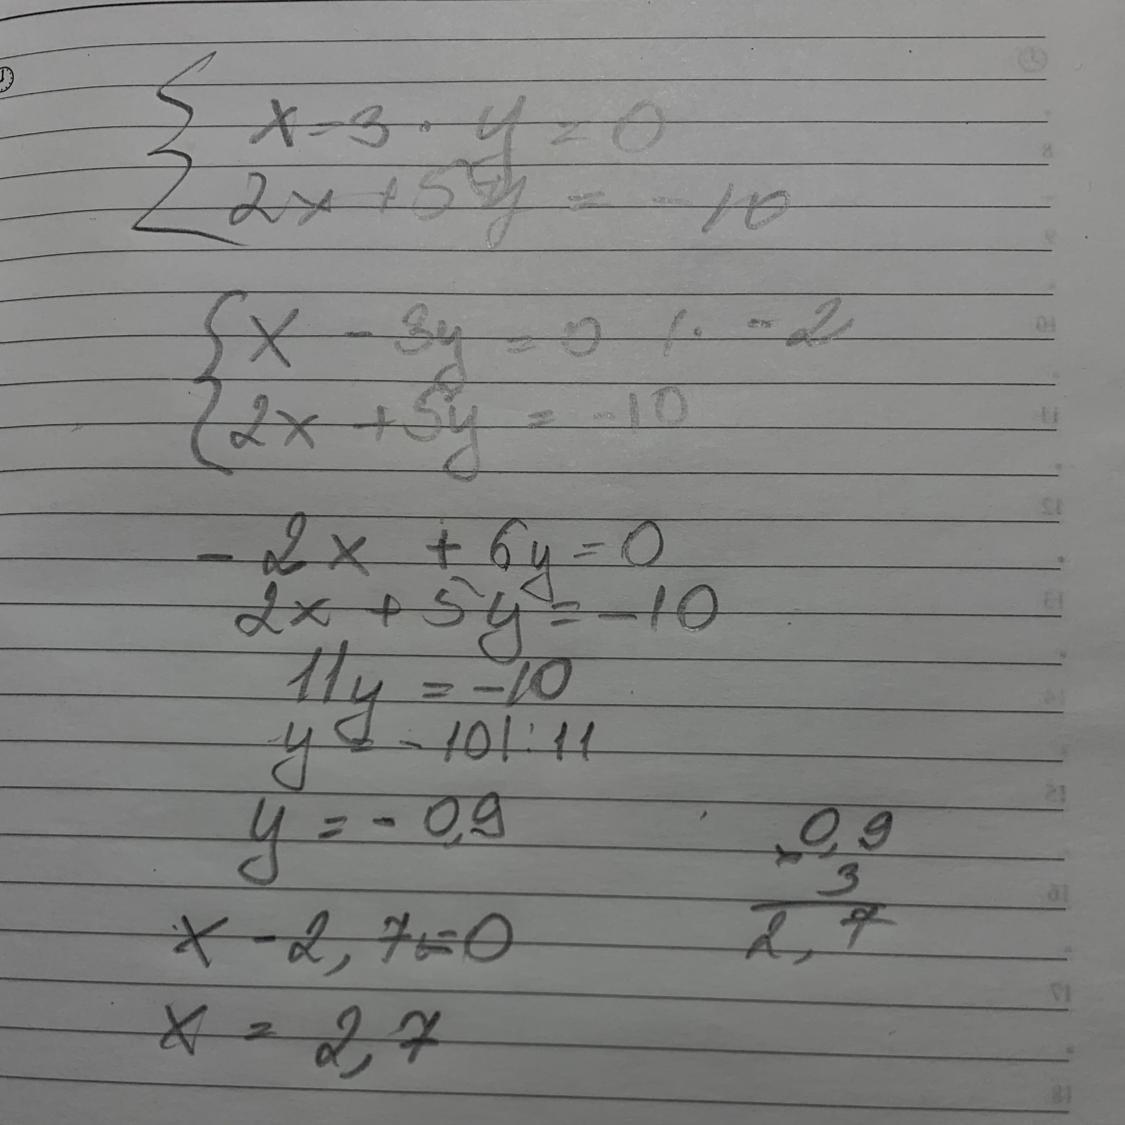 x - 3 · y = 0
2x + 5y = -10
x - 3y = 0 /· -2
2x + 5y = -10
- 2x + 6y = 0
2x + 5y = -10
11y = -10
y = -10/:11
y = - 0,9
0,9
× 3
2,7
x - 2,7 = 0
x = 2,7